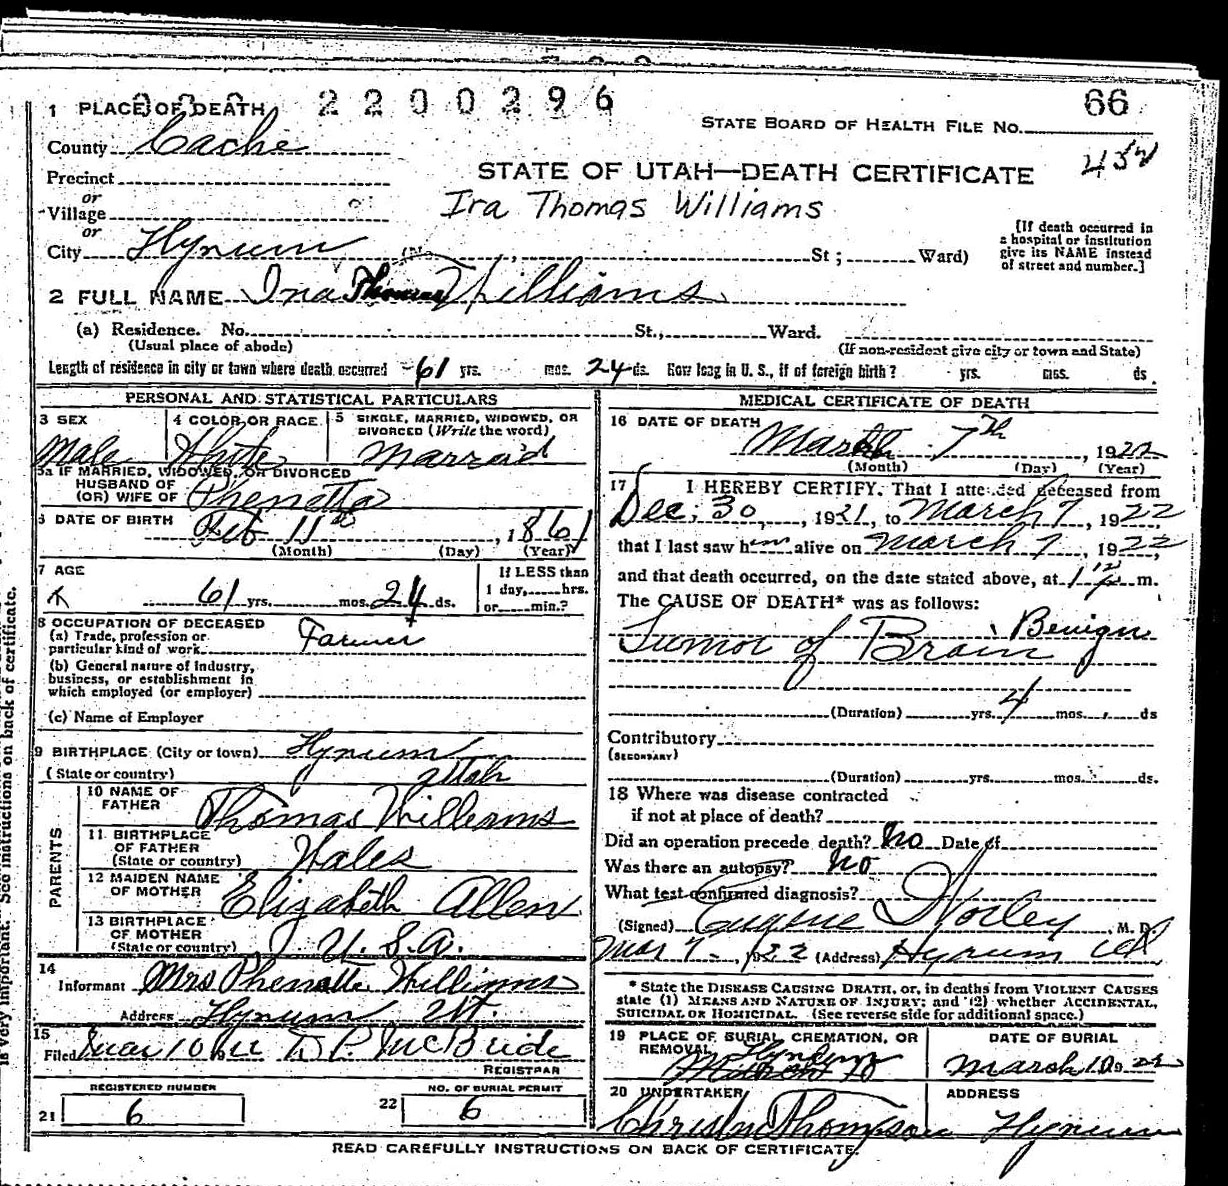 2200296
66
1 PLACE OF DEATH
STATE BOARD OF HEALTH FILE NO.
County Cache
STATE OF UTAH—DEATH CERTIFICATE
Precinct
or
Village
Ira Thomas Williams
or
City Hyrum St; Ward)
[If death occurred in a hospital or institution give its NAME instead of street and number.]
2 FULL NAME Ira Thomas Williams
(a) Residence. No. St., Ward.
(Usual place of abode)
(If non-resident give city or town and State)
Length of residence in city or town where death occurred 61 yrs. mos. 24 ds. How long in U. S., if of foreign birth? yrs. mos. ds.
PERSONAL AND STATISTICAL PARTICULARS
3 SEX
Male
4 COLOR OR RACE
White
5 SINGLE, MARRIED, WIDOWED, OR DIVORCED (Write the word)
Marreid
5a IF MARRIED, WIDOWED, OR DIVORCED
HUSBAND OF
(OR) WIFE OF Phenatta
6 DATE OF BIRTH Feb 11th, 1861
(Month) (Day) (Year)
7 AGE
61 yrs. mos. 24 ds.
If LESS than 1 day, hrs. or min.?
8 OCCUPATION OF DECEASED
(a) Trade, profession or particular kind of work Farmer
(b) General nature of industry, business, or establishment in which employed (or employer)
(c) Name of Employer
9 BIRTHPLACE (City or town) Hyrum
(State or country) Utah
PARENTS
10 NAME OF FATHER Thomas Williams
11 BIRTHPLACE OF FATHER (State or country) Wales
12 MAIDEN NAME OF MOTHER Elizabeth Allen
13 BIRTHPLACE OF MOTHER (State or country) U.S.A.
14
Informant Mrs Phenatta Williams
Address Hyrum Ut.
15
Filed Mar 10 P. McBride
REGISTRAR
REGISTERED NUMBER
21 6
NO. OF BURIAL PERMIT
22 6
MEDICAL CERTIFICATE OF DEATH
16 DATE OF DEATH
March 7th, 1922
(Month) (Day) (Year)
17 I HEREBY CERTIFY. That I attended deceased from
Dec. 30, 1921, to March 7, 1922,
that I last saw him alive on March 7, 1922
and that death occurred, on the date stated above, at m.
The CAUSE OF DEATH* was as follows:
Tumor of Brain, Benign
(Duration) yrs. 4 mos. ds
Contributory
(SECONDARY)
(Duration) yrs. mos. ds.
18 Where was disease contracted
if not at place of death?
Did an operation precede death? No Date of
Was there an autopsy? No
What test confirmed diagnosis?
(Signed) Eugene Worley, M. D.
Mar 7, 1922 (Address) Hyrum Ut.
* State the DISEASE CAUSING DEATH, or, in deaths from VIOLENT CAUSES state (1) MEANS AND NATURE OF INJURY; and (2) whether ACCIDENTAL, SUICIDAL OR HOMICIDAL. (See reverse side for additional space.)
19 PLACE OF BURIAL, CREMATION, OR REMOVAL
Hyrum
DATE OF BURIAL
March 10 1922
20 UNDERTAKER
Thompson
ADDRESS
Hyrum
READ CAREFULLY INSTRUCTIONS ON BACK OF CERTIFICATE.
is very important. See instructions on back of certificate.